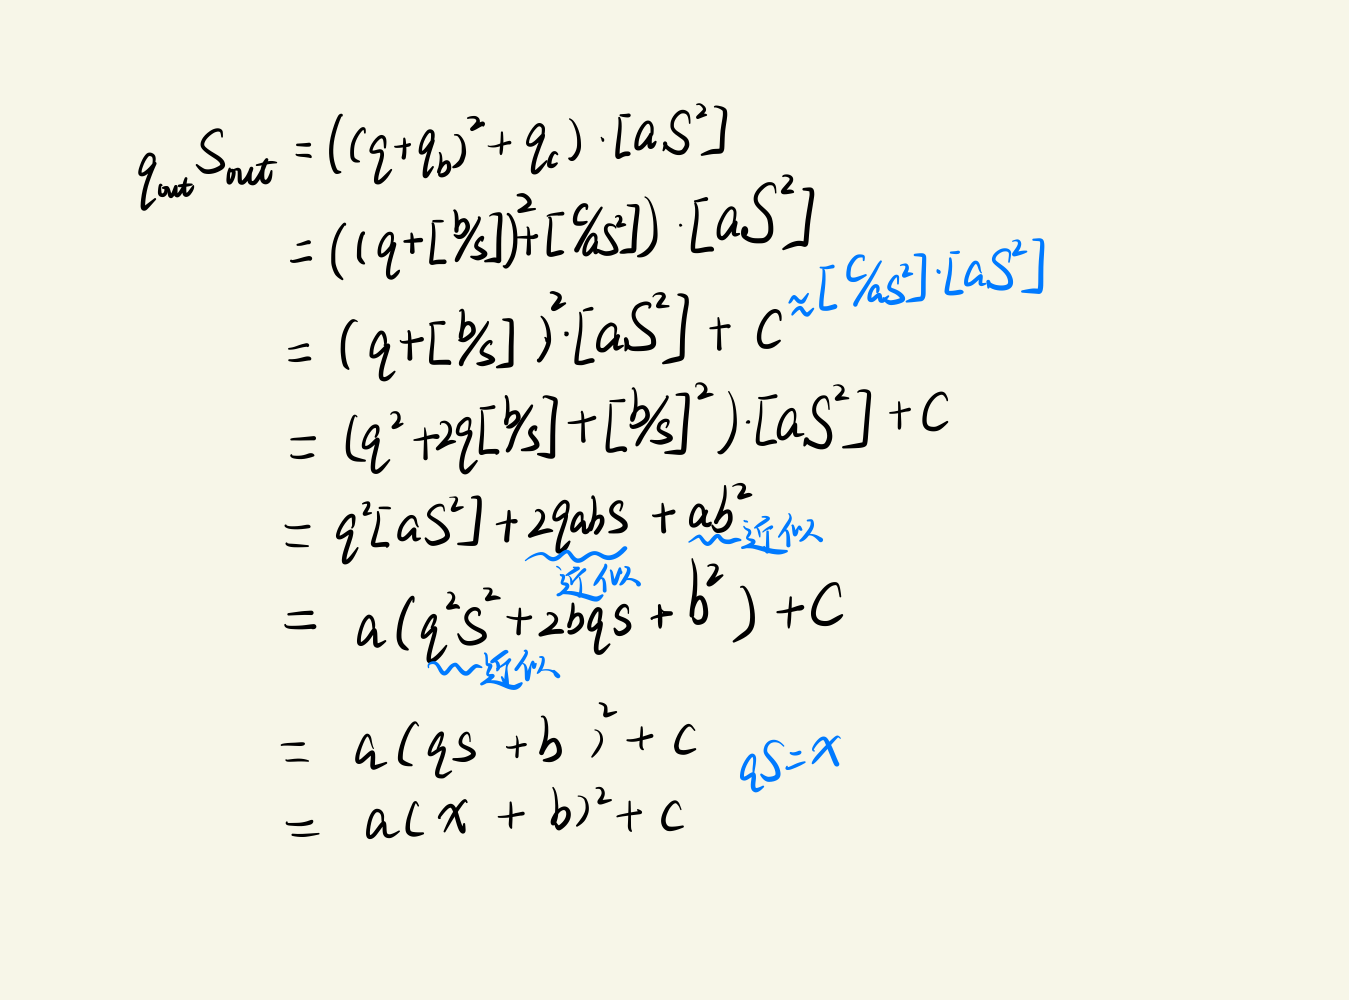 q_out S_out = ((q+q_b)²+q_c)·[aS²]
= ((q+[b/s])²+[c/aS²])·[aS²]
= (q+[b/s])²·[aS²]+C ≈[c/aS²]·[aS²]
= (q²+2q[b/s]+[b/s]²)·[aS²]+C
= q²[aS²]+2qabs+ab² 近似
近似
= a(q²s²+2bqs+b²)+C
近似
= a(qs+b)²+c qS=x
= a(x+b)²+c